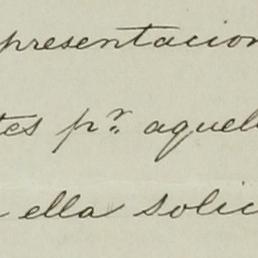 presentacion
tes pr. aquel
ella solic